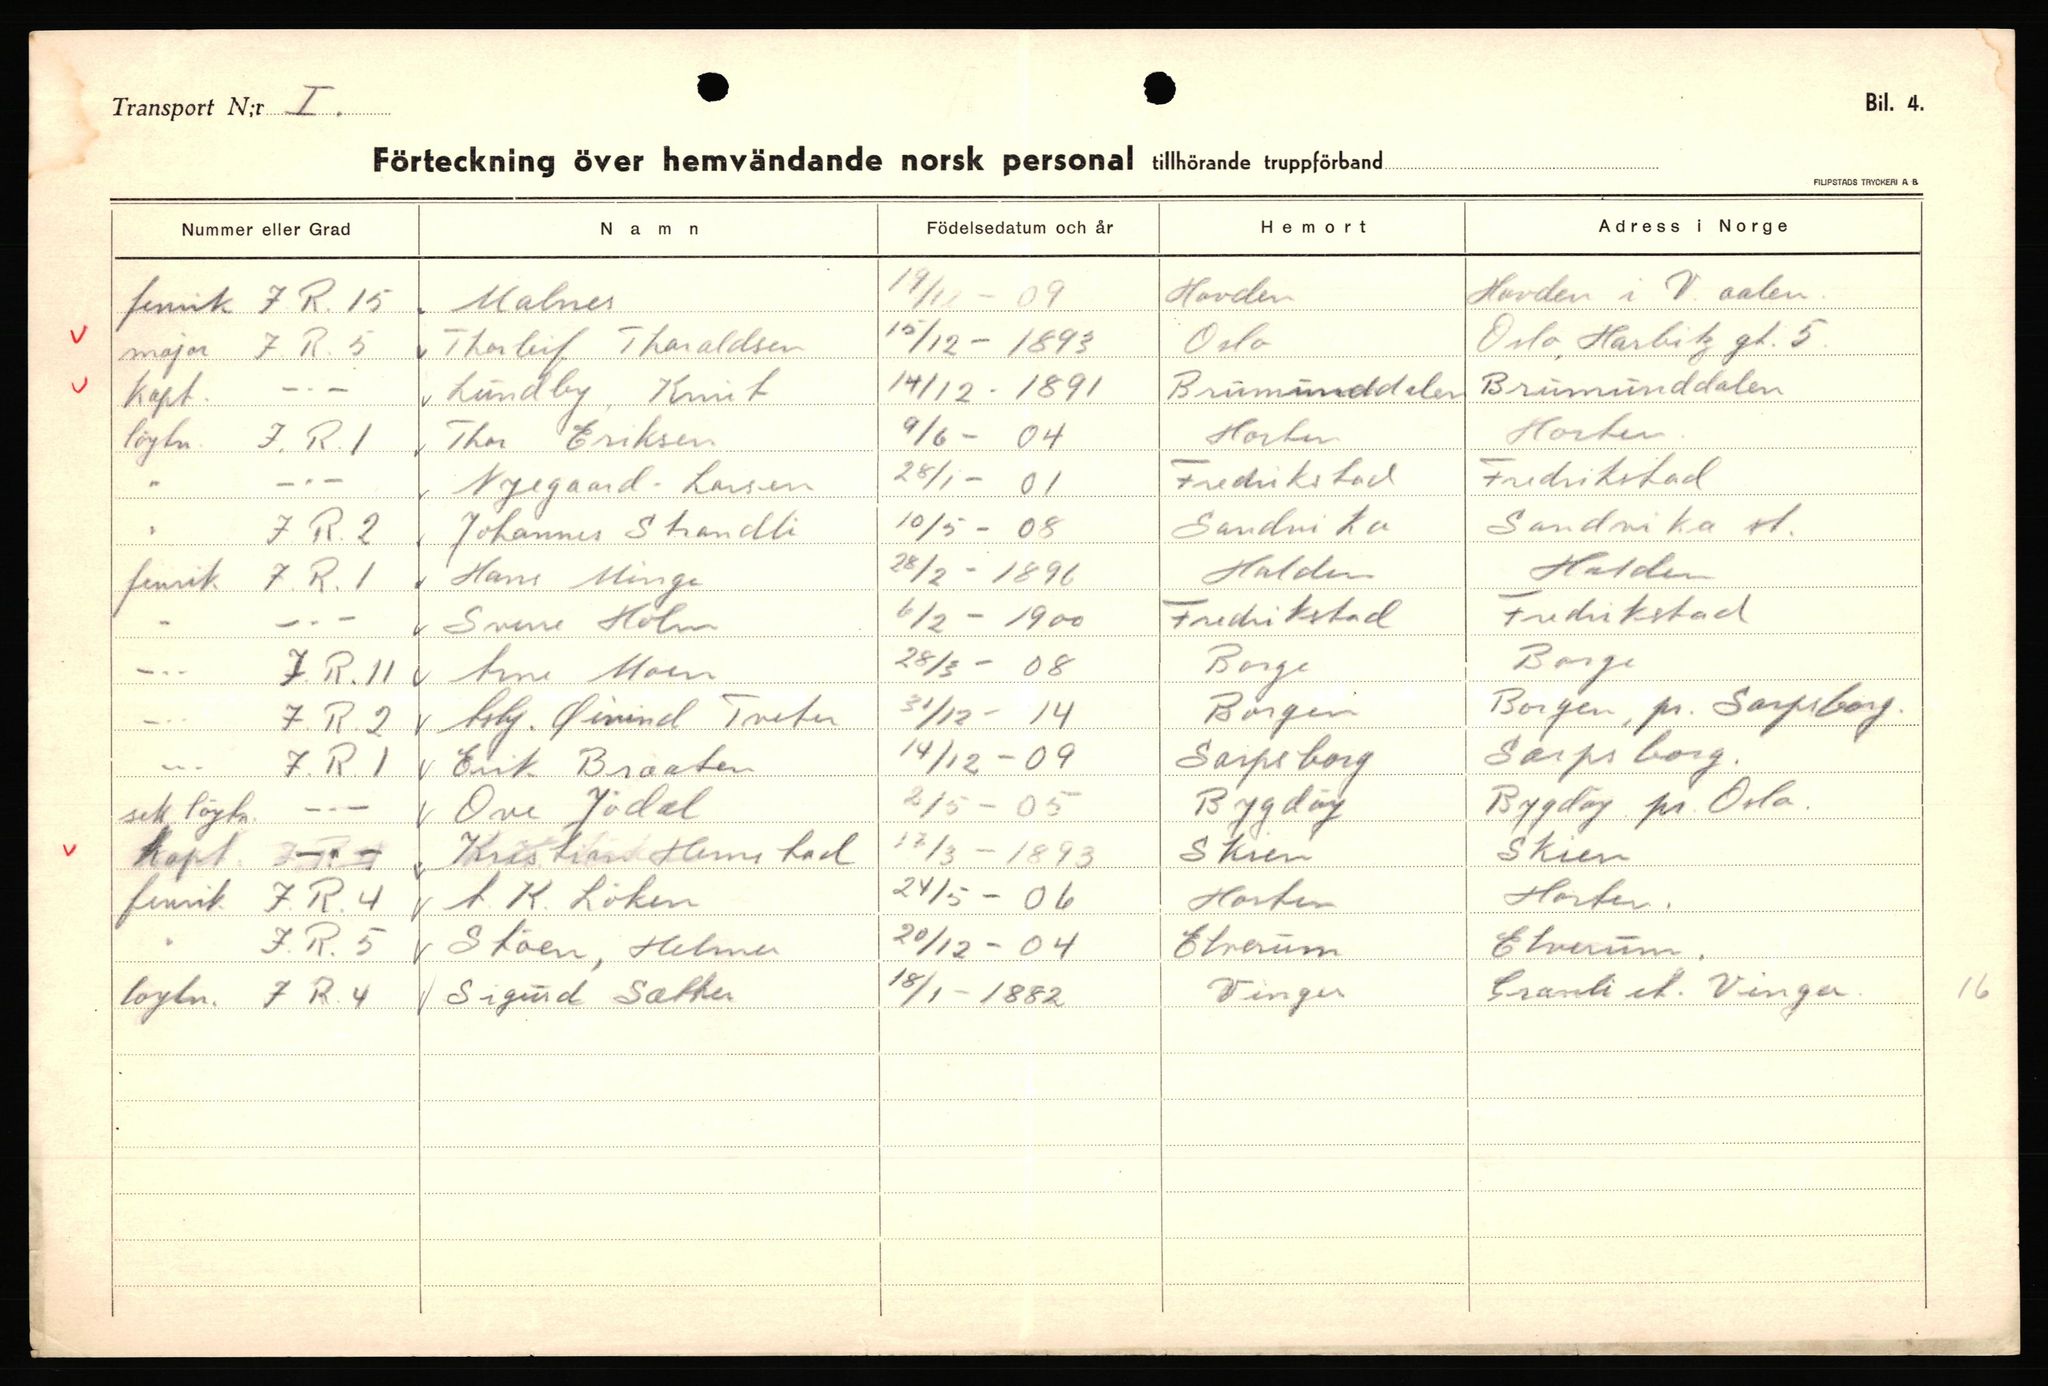 Transport N;r I.
Bil. 4.
Förteckning över hemvändande norsk personal tillhörande truppförband
FILIPSTADS TRYCKERI A. B.
Nummer eller Grad Namn Födelsedatum och år Hemort Adress i Norge
fenrik I.R. 15 Malnes 09 Hovden Hovden i V. aalen.
v major I.R. 5 v Thorleif Tharaldsen 15/12 - 1893 Oslo Oslo, Harbitz gt. 5.
v Kapt. -"- v Lundby, Knut 14/12 - 1891 Brumunddalen Brumunddalen
löytn. I.R. 1 v Thor Eriksen 9/6 - 04 Horten Horten.
" -"- v Nyegaard-Larsen 28/1 - 01 Fredrikstad Fredrikstad
" I.R. 2 v Johannes Strandli 10/5 - 08 Sandvika Sandvika st.
fenrik I.R. 1 v Hans Minge 28/2 - 1896 Halden Halden
" -"- v Sverre Holm 6/2 - 1900 Fredrikstad Fredrikstad
-"- I.R. 11 v Arne Moen 28/3 - 08 Borge Borge
-"- I.R. 2 v Asbj. Øivind Tveter 31/12 - 14 Borgen Borgen, pr. Sarpsborg.
-"- I.R. 1 v Erik Braaten 14/12 - 09 Sarpsborg Sarpsborg.
sek löytn. -"- v Ove Jödal 2/5 - 05 Bygdöy Bygdöy pr. Oslo.
v Kapt. -"- v Kristian Hemstad 17/3 - 1893 Skien Skien
fenrik I.R. 4 v A. K. Löken 24/5 - 06 Horten Horten.
" I.R. 5 v Stöen, Helmer 20/12 - 04 Elverum Elverum.
löytn. I.R. 4 v Sigurd Sæther 18/1 - 1882 Vinger Granli st. Vinger. 16